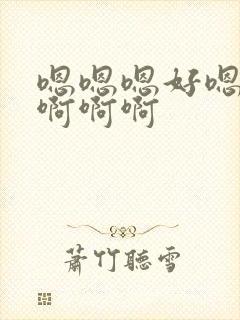 嗯嗯嗯好嗯
啊啊啊
蕭竹聽雪